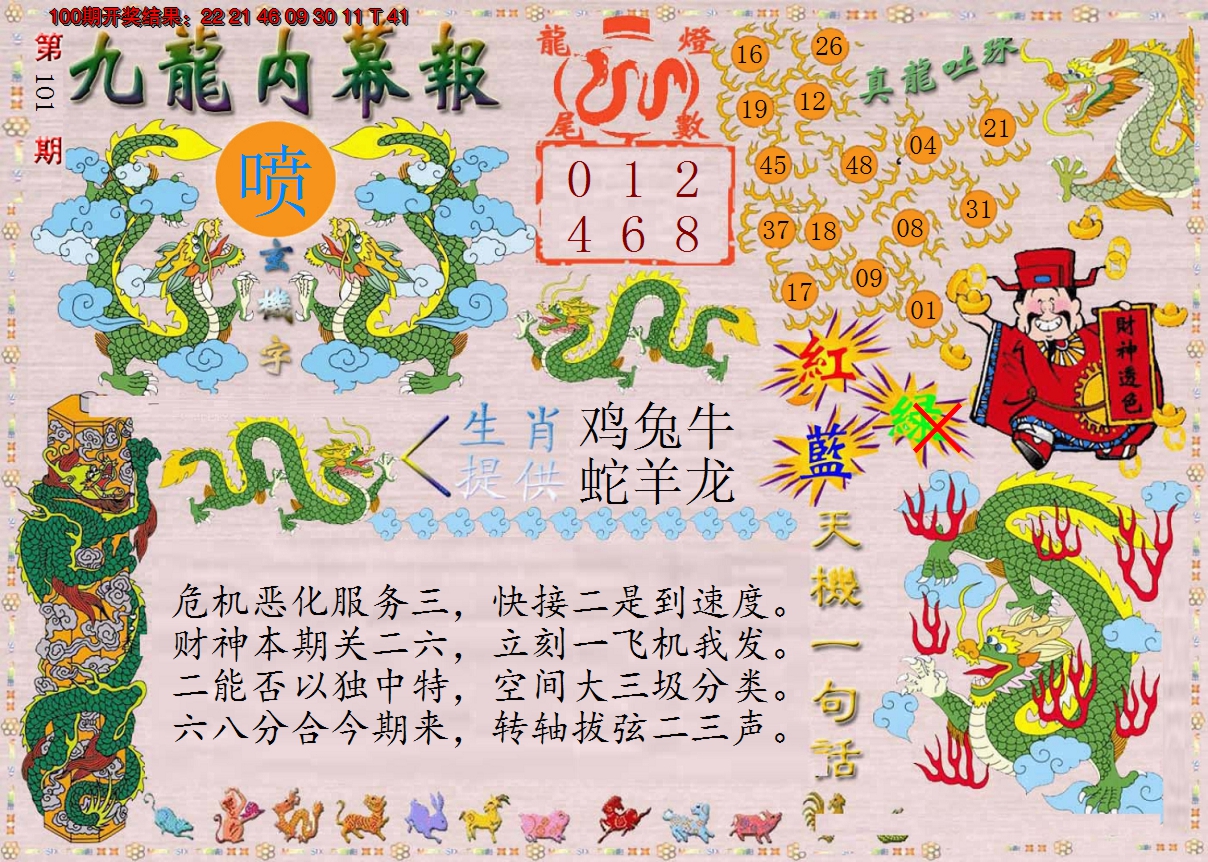 100期开奖结果：22 21 46 09 30 11 T 41
第101期
九龍内幕報
喷
玄機字
龍燈尾數
0 1 2
4 6 8
真龍吐珠
16 26
19 12
45 48 04 21
37 18 08 31
17 09 01
紅
綠
藍
財神透色
生肖提供
鸡兔牛
蛇羊龙
天機一句話
危机恶化服务三，快接二是到速度。
财神本期关二六，立刻一飞机我发。
二能否以独中特，空间大三圾分类。
六八分合今期来，转轴拔弦二三声。